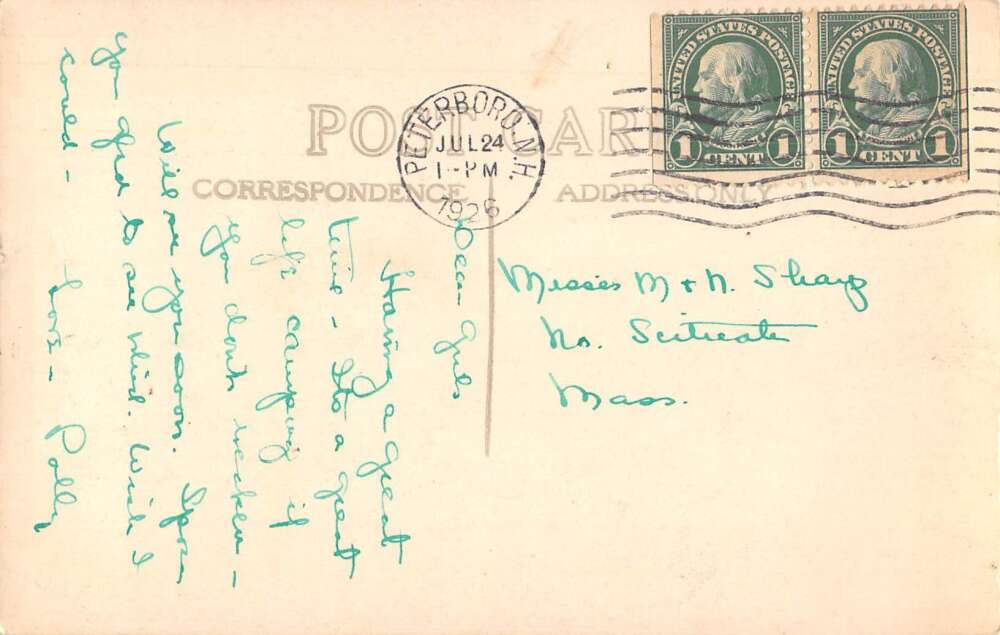 POST CARD
CORRESPONDENCE
ADDRESS ONLY
PETERBORO, N.H.
JUL 24
1-PM
1926
UNITED STATES POSTAGE
1 CENT 1
UNITED STATES POSTAGE
1 CENT 1
Misses M + N. Sharp
No. Scituate
Mass.
Dear Girls
Having a great
time - Its a great
life camping if
you dont weaken -
Will see you soon. Spose
you to see Wish I
could -
Love - Polly